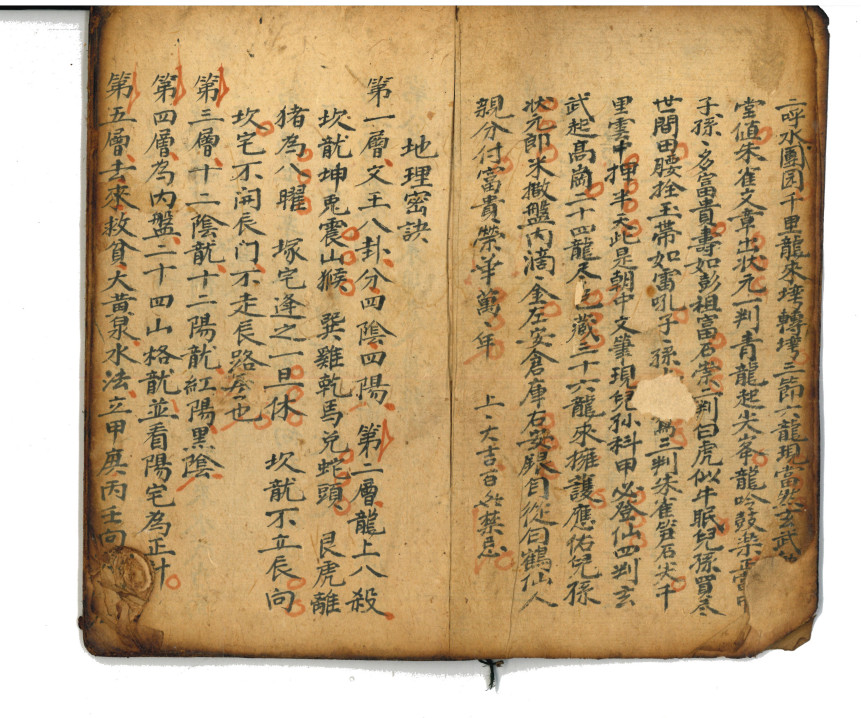 二呼水團园千里龍來塆轉塆三節六龍現當然玄武
堂值朱雀文章出狀元一判青龍起尖峯龍吟鼓樂正當
子孫、多富貴壽如彭祖富石崇二判白虎似牛眠兒孫買尽
世間田腰拴玉帶如雷吼子、孫 三判朱雀笡石尖千
里雲中押半天此是朝中文筆現兒孫科甲必登仙四判玄
武起高崗二十四龍尽 藏三十六龍來擁護應佑兒孫
狀元郎米撒盤內滴、金左安倉庫右安銀自從白鶴仙人
親分付富貴榮華萬、年 上、大吉百無禁忌
地理密訣
第一層、文王八卦、分四陰四陽、第二層、龍上八殺
坎龍坤兎震山猴 巽雞乾馬兑蛇頭 艮虎離
猪為八曜 塚宅逢之一旦休 坎龍不立辰向
坎宅不開辰门、不走辰路為也
第三層、十二陰龍、十二陽龍、紅陽黑陰
第四層、為內盤、二十四山格龍並看陽宅為正針
第五層、去來救貧、大黃泉水法、立甲庚丙壬向